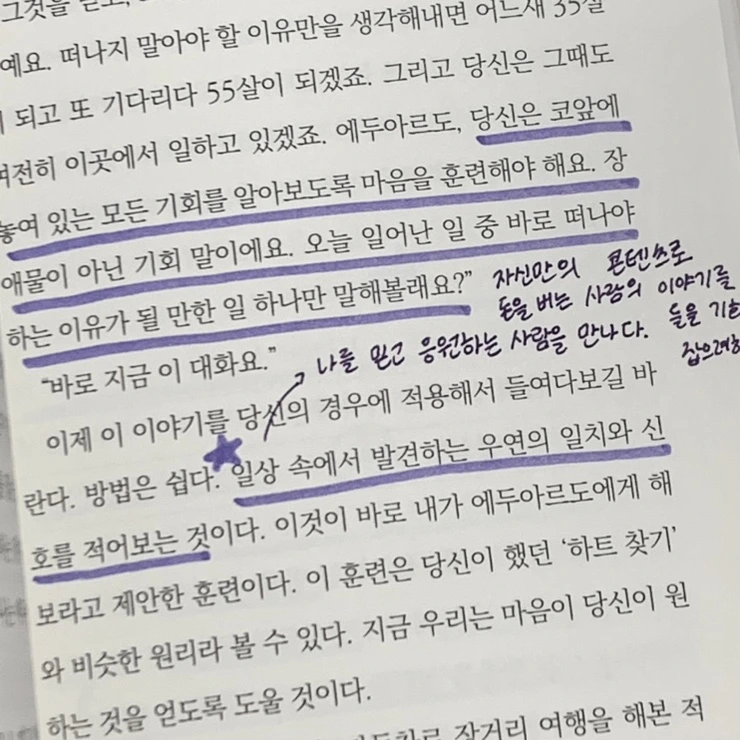 그것을
예요. 떠나지 말아야 할 이유만을 생각해내면 어느새 35살
되고 또 기다리다 55살이 되겠죠. 그리고 당신은 그때도
여전히 이곳에서 일하고 있겠죠. 에두아르도, 당신은 코앞에
놓여 있는 모든 기회를 알아보도록 마음을 훈련해야 해요. 장
애물이 아닌 기회 말이에요. 오늘 일어난 일 중 바로 떠나야
하는 이유가 될 만한 일 하나만 말해볼래요?”
자신만의 콘텐츠로
돈을 버는 사람의 이야기를
들을 기회
“바로 지금 이 대화요.”
나를 믿고 응원하는 사람을 만나다.
이제 이 이야기를 당신의 경우에 적용해서 들여다보길 바
란다. 방법은 쉽다. 일상 속에서 발견하는 우연의 일치와 신
호를 적어보는 것이다. 이것이 바로 내가 에두아르도에게 해
보라고 제안한 훈련이다. 이 훈련은 당신이 했던 ‘하트 찾기’
와 비슷한 원리라 볼 수 있다. 지금 우리는 마음이 당신이 원
하는 것을 얻도록 도울 것이다.
장거리 여행을 해본 적